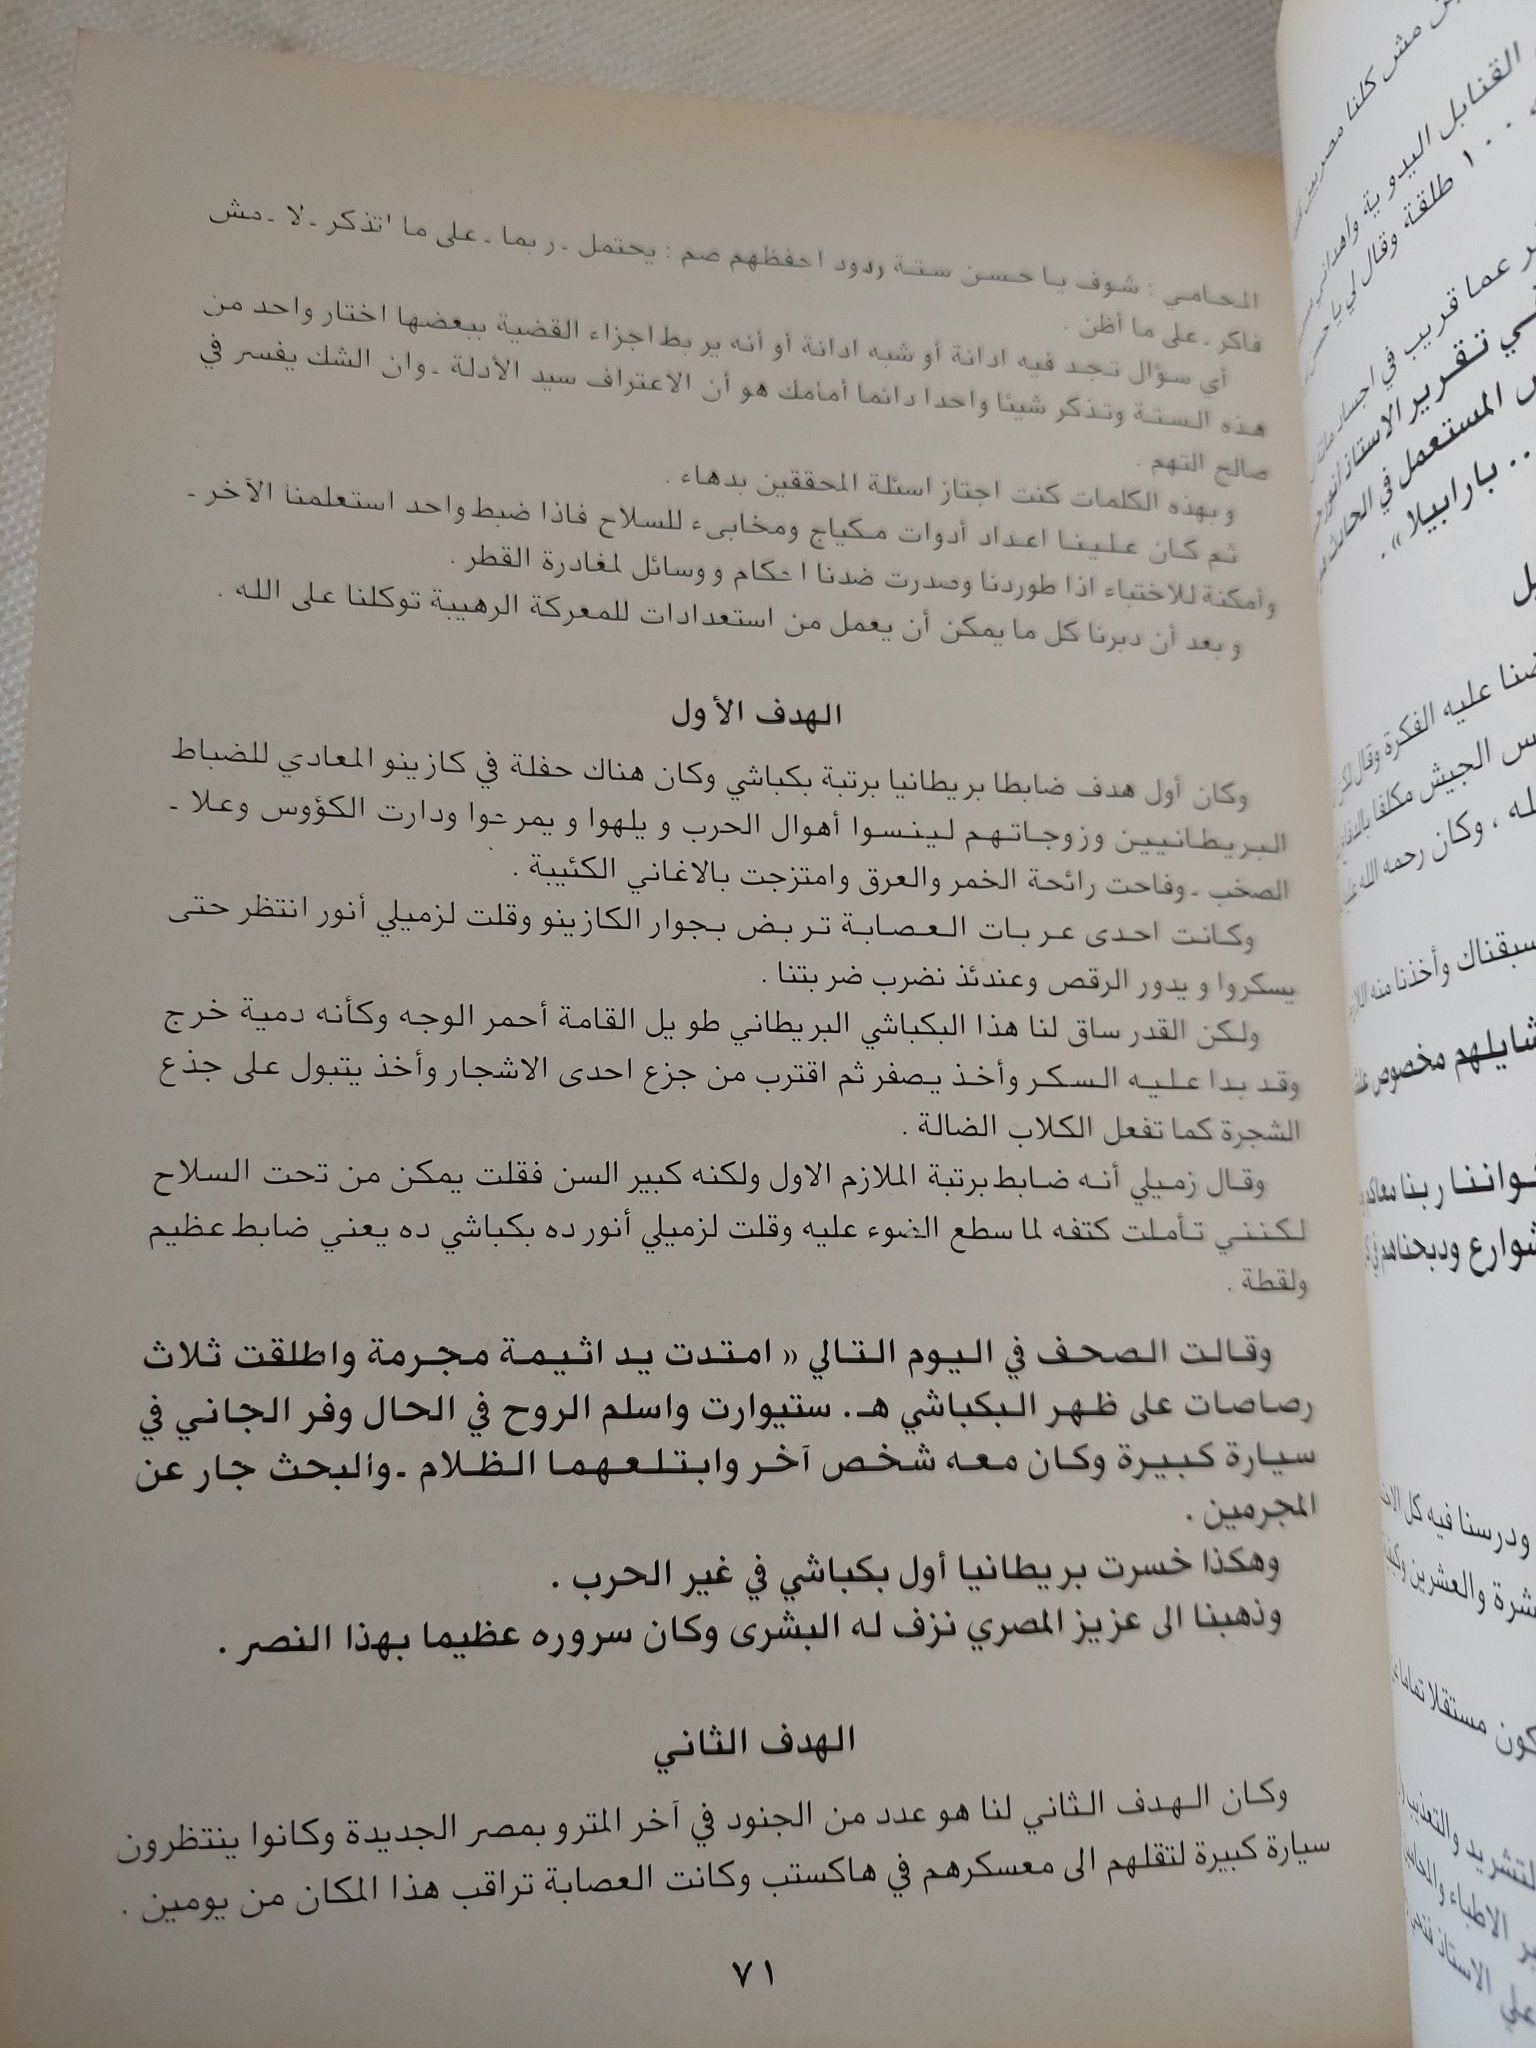 المحامي : شوف يا حسن ستة ردود احفظهم صم : يحتمل ـ ربما ـ على ما اتذكر ـ لا ـ مش
فاكر ـ على ما أظن .
أي سؤال تجد فيه ادانة أو شبه ادانة أو أنه يربط اجزاء القضية ببعضها اختار واحد من
هذه الستة وتذكر شيئا واحدا دائما أمامك هو أن الاعتراف سيد الأدلة ـ وان الشك يفسر في
صالح التهم .
وبهذه الكلمات كنت اجتاز اسئلة المحققين بدهاء .
ثم كان علينا اعداد أدوات مكياج ومخابىء للسلاح فاذا ضبط واحد استعلمنا الأخر ـ
وأمكنة للاختباء اذا طوردنا وصدرت ضدنا احكام ووسائل لمغادرة القطر .
وبعد أن دبرنا كل ما يمكن أن يعمل من استعدادات للمعركة الرهيبة توكلنا على الله .
الهدف الأول
وكان أول هدف ضابطا بريطانيا برتبة بكباشي وكان هناك حفلة في كازينو المعادي للضباط
البريطانيين وزوجاتهم لينسوا أهوال الحرب ويلهوا ويمرحوا ودارت الكؤوس وعلا ـ
الصخب ـ وفاحت رائحة الخمر والعرق وامتزجت بالاغاني الكئيبة .
وكانت احدى عربات العصابة تربض بجوار الكازينو وقلت لزميلي أنور انتظر حتى
يسكروا ويدور الرقص وعندئذ نضرب ضربتنا .
ولكن القدر ساق لنا هذا البكباشي البريطاني طويل القامة أحمر الوجه وكأنه دمية خرج
وقد بدا عليه السكر وأخذ يصفر ثم اقترب من جزع احدى الاشجار وأخذ يتبول على جذع
الشجرة كما تفعل الكلاب الضالة .
وقال زميلي أنه ضابط برتبة الملازم الاول ولكنه كبير السن فقلت يمكن من تحت السلاح
لكنني تأملت كتفه لما سطع الضوء عليه وقلت لزميلي أنور ده بكباشي ده يعني ضابط عظيم
ولقطة .
وقالت الصحف في اليوم التالي « امتدت يد اثيمة مجرمة واطلقت ثلاث
رصاصات على ظهر البكباشي هـ . ستيوارت واسلم الروح في الحال وفر الجاني في
سيارة كبيرة وكان معه شخص آخر وابتلعهما الظلام ـ والبحث جار عن
المجرمين .
وهكذا خسرت بريطانيا أول بكباشي في غير الحرب .
وذهبنا الى عزيز المصري نزف له البشرى وكان سروره عظيما بهذا النصر .
الهدف الثاني
وكان الهدف الثاني لنا هو عدد من الجنود في آخر المترو بمصر الجديدة وكانوا ينتظرون
سيارة كبيرة لتقلهم الى معسكرهم في هاكستب وكانت العصابة تراقب هذا المكان من يومين .
٧١
مش كلنا مصريين
القنابل اليدوية واهداني
١٠٠ طلقة وقال لي يا حسن
عما قريب في اجساد
تقرير الاستاذ انور
المستعمل في الحادث
.. بارابيلا » .
عليه الفكرة وقال
الجيش مكلفا
، وكان رحمه الله
سبقناك وأخذنا منه
شايلهم مخصوص
ربنا
ودبحناهم
ودرسنا فيه كل
والعشرين
مستقلا تماما
والتعذيب
الاطباء
الاستاذ